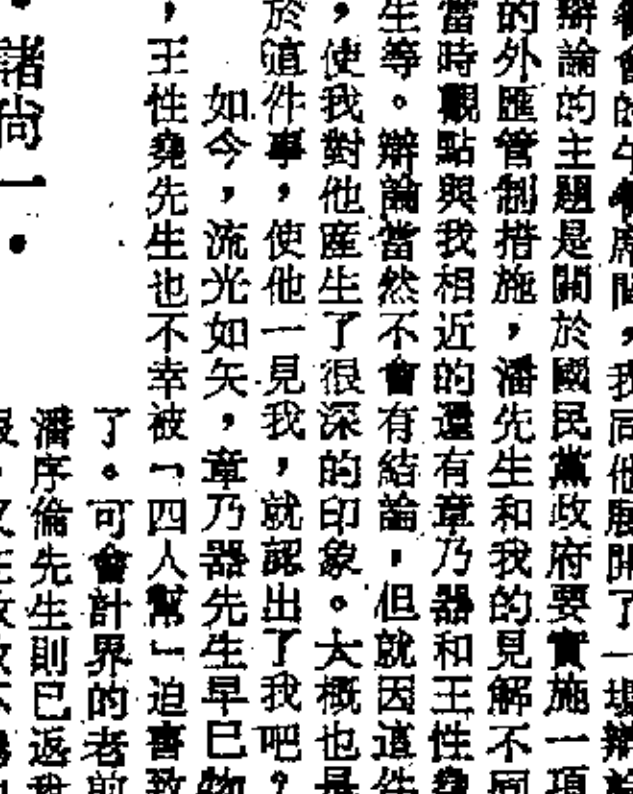 會的午餐席間，我同他展開了一場辯論
辯論的主題是關於國民黨政府要實施一項
的外匯管制措施，潘先生和我的見解不同
當時觀點與我相近的還有章乃器和王性堯
生等。辯論當然不會有結論，但就因這件
，使我對他産生了很深的印象。大概也是
於這件事，使他一見我，就認出了我吧？
如今，流光如矢，章乃器先生早已物
，王性堯先生也不幸被「四人幫」迫害致
了。可會計界的老前
潘序倫先生則已返
諸尚一